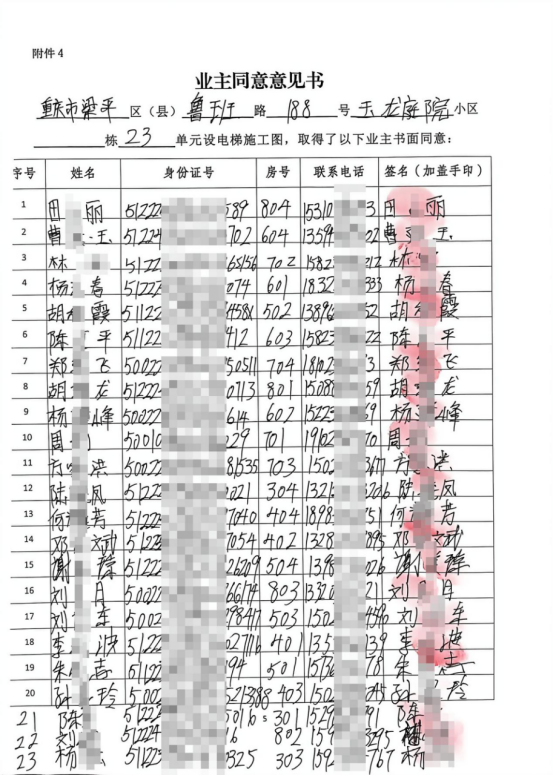 附件4
业主同意意见书
重庆市梁平区(县)鲁班路188号玉龙庭院小区
栋23单元设电梯施工图,取得了以下业主书面同意:
序号 姓名 身份证号 房号 联系电话 签名(加盖手印)
1 田 丽 51222 589 804 15310 3 田 丽
2 曹 玉 51224 702 604 1359 02 曹 玉
3 林 5122 65156 702 1582 212 林
4 杨 春 51222 074 601 1832 333 杨 春
5 胡 霞 51122 4581 502 13896 52 胡 霞
6 陈 平 51122 412 603 1582 22 陈 平
7 郑 飞 50022 50511 704 18102 3 郑 飞
8 胡 龙 51222 0113 801 1508 59 胡 龙
9 杨 峰 50022 614 602 1522 69 杨 峰
10 周 50010 229 701 1910 70 周
11 方 洪 50022 81535 703 150 3671 方 洪
12 陆 凤 51222 021 304 1321 206 陈 凤
13 何 芳 5122 7040 404 1898 51 何 芳
14 邓 斌 5122 7054 402 1328 895 邓 斌
15 谢 51222 26209 504 1398 026 谢
16 刘 月 50022 66174 803 1320 21 刘 月
17 刘 军 50022 29847 503 150 4596 刘 军
18 李 波 51222 027116 401 135 139 李 波
19 朱 志 51122 94 501 1513 78 朱 志
20 孙 玲 5002 521388 403 150 245 孙 玲
21 陈 51222 501 301 1529 91 陈
22 刘 51224 6 802 159 3295
23 杨 51122 0325 303 159 767 杨